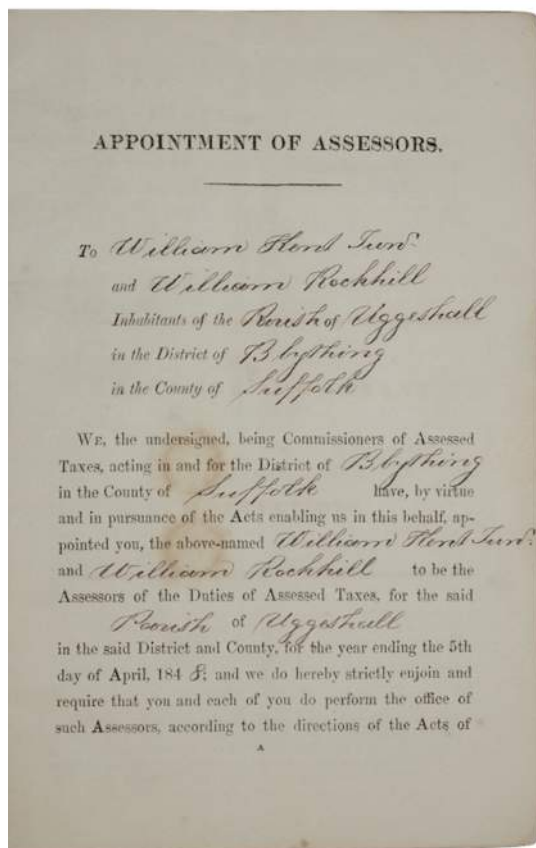 APPOINTMENT OF ASSESSORS.
To William
and William Rockhill
Inhabitants of the Parish of Uggeshall
in the District of Blything
in the County of Suffolk
WE, the undersigned, being Commissioners of Assessed
Taxes, acting in and for the District of Blything
in the County of Suffolk have, by virtue
and in pursuance of the Acts enabling us in this behalf, ap-
pointed you, the above-named William
and William Rockhill to be the
Assessors of the Duties of Assessed Taxes, for the said
Parish of Uggeshall
in the said District and County, for the year ending the 5th
day of April, 1848; and we do hereby strictly enjoin and
require that you and each of you do perform the office of
such Assessors, according to the directions of the Acts of
A